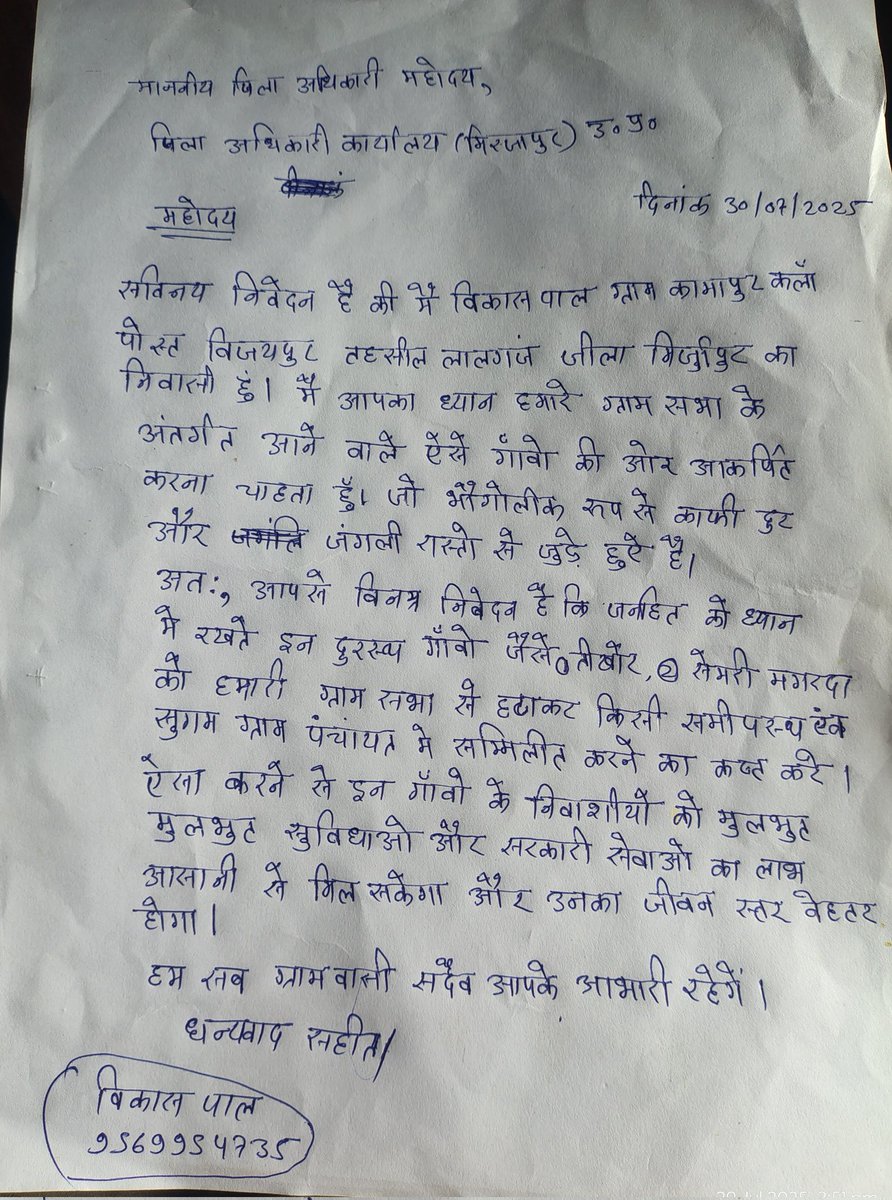 माननीय जिला अधिकारी महोदय,
जिला अधिकारी कार्यालय (मिरजापुर) उ० प्र०
दिनांक 30/07/2025
महोदय
सविनय निवेदन है की मैं विकास पाल ग्राम कामापुर कलाँ
पोस्ट विजयपुर तहसील लालगंज जीला मिर्जापुर का
निवासी हुं। मैं आपका ध्यान हमारे ग्राम सभा के
अंतर्गत आने वाले ऐसे गाँवो की ओर आकर्षित
करना चाहता हूँ। जो भौगोलीक रूप से काफी दुर
और जंगली रास्तो से जुड़े हुऐ है।
अतः, आपसे विनम्र निवेदन है कि जनहित को ध्यान
मे रखते इन दुरस्थ गाँवो जैसे ① तीखोर, ② सेमरी मगरदा
को हमारी ग्राम सभा से हटाकर किसी समीपस्थ एंव
सुगम ग्राम पंचांयत मे सम्मिलीत करने का कष्ट करे।
ऐसा करने से इन गाँवो के निवाशीयों को मुलभुत
मुलभुत सुविधाओ और सरकारी सेवाओं का लाभ
आसानी से मिल सकेगा और उनका जीवन स्तर वेहतर
होगा।
हम सव ग्रामवासी सदैव आपके आभारी रहेगें।
धन्यवाद सहीत।
विकास पाल
9569954735